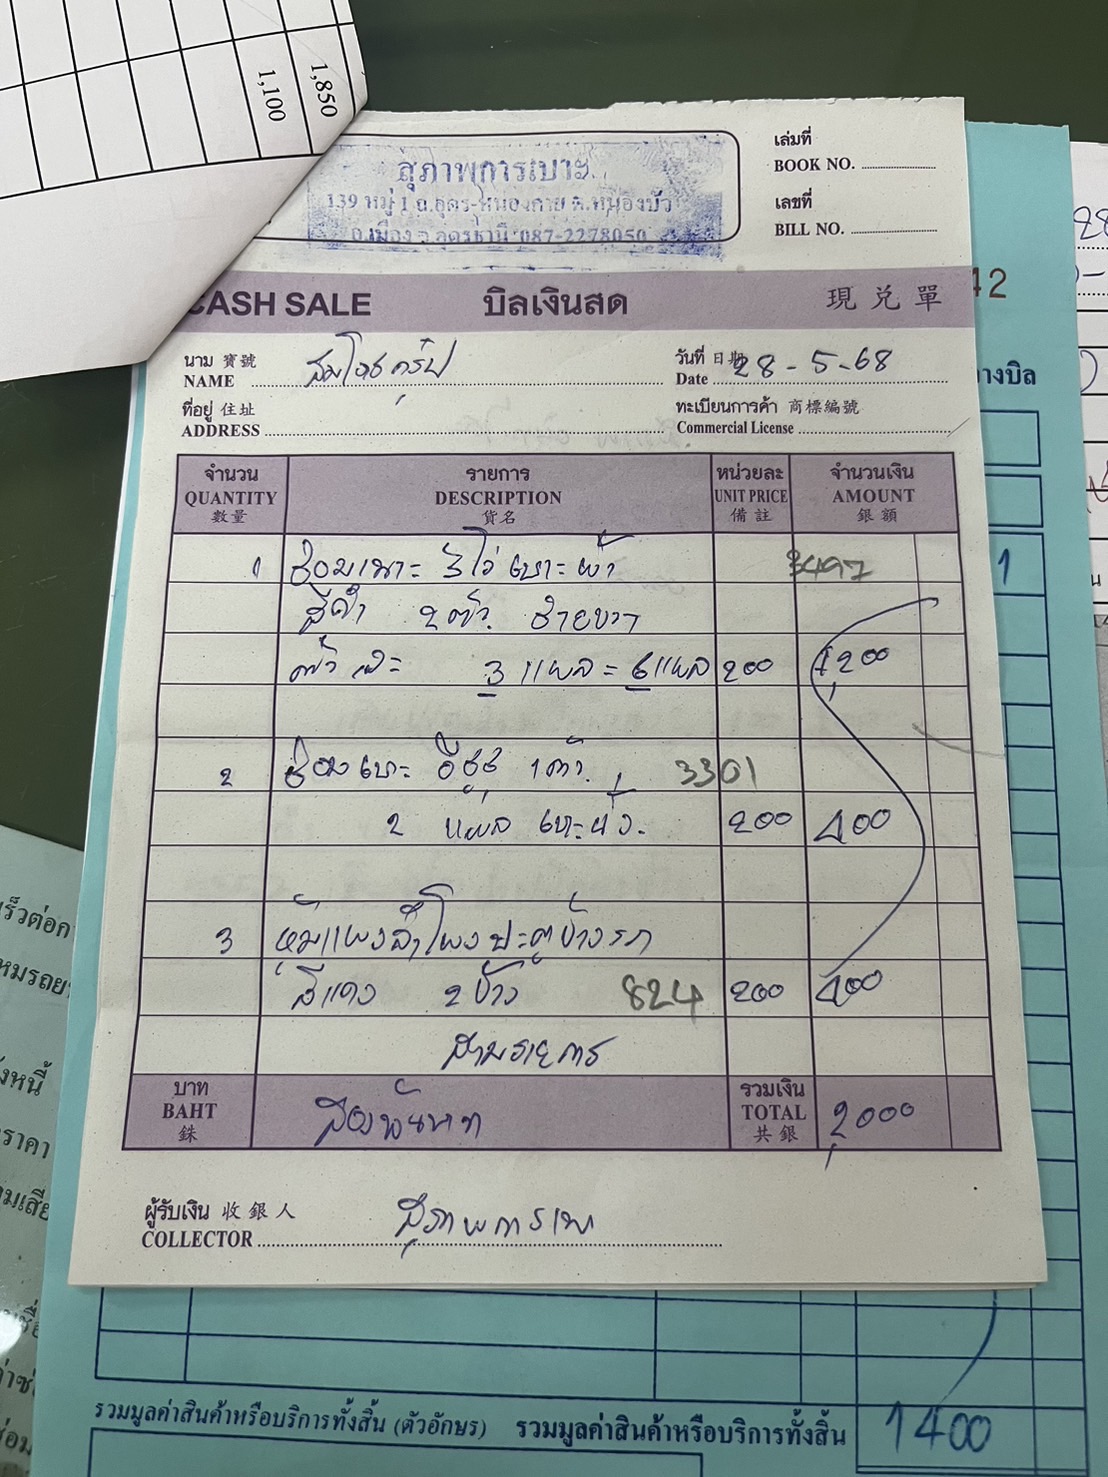 1,850
1,100
สุภาพการเบาะ
139 หมู่ 1 ถ.อุดร-หนองคาย ต.หมูม่น
อ.เมือง จ.อุดรธานี 087-2278050
เล่มที่
BOOK NO.
เลขที่
BILL NO.
CASH SALE บิลเงินสด 現兌單
42
นาม 寶號
NAME
วันที่ 日期
Date 28-5-68
ที่อยู่ 住址
ADDRESS
ทะเบียนการค้า 商標編號
Commercial License
างบิล
จำนวน รายการ หน่วยละ จำนวนเงิน
QUANTITY DESCRIPTION UNIT PRICE AMOUNT
數量 貨名 備註 銀額
1 ซ่อมเบาะ 3497
สีดำ 2 ตัว
3 แผล = 6 แผล 200 1,200
2 ซ่อมเบาะ อีซูซุ 1 ตัว 3301
2 แผล เบาะนั่ง 200 400
3 หุ้มแผงลำโพงประตูข้างรถ
สีแดง 2 ข้าง 824 200 400
สามรายการ
บาท รวมเงิน
BAHT สองพันบาท TOTAL 2,000
銖 共銀
ผู้รับเงิน 收銀人
COLLECTOR สุภาพการเบาะ
รวมมูลค่าสินค้าหรือบริการทั้งสิ้น (ตัวอักษร) รวมมูลค่าสินค้าหรือบริการทั้งสิ้น 1400